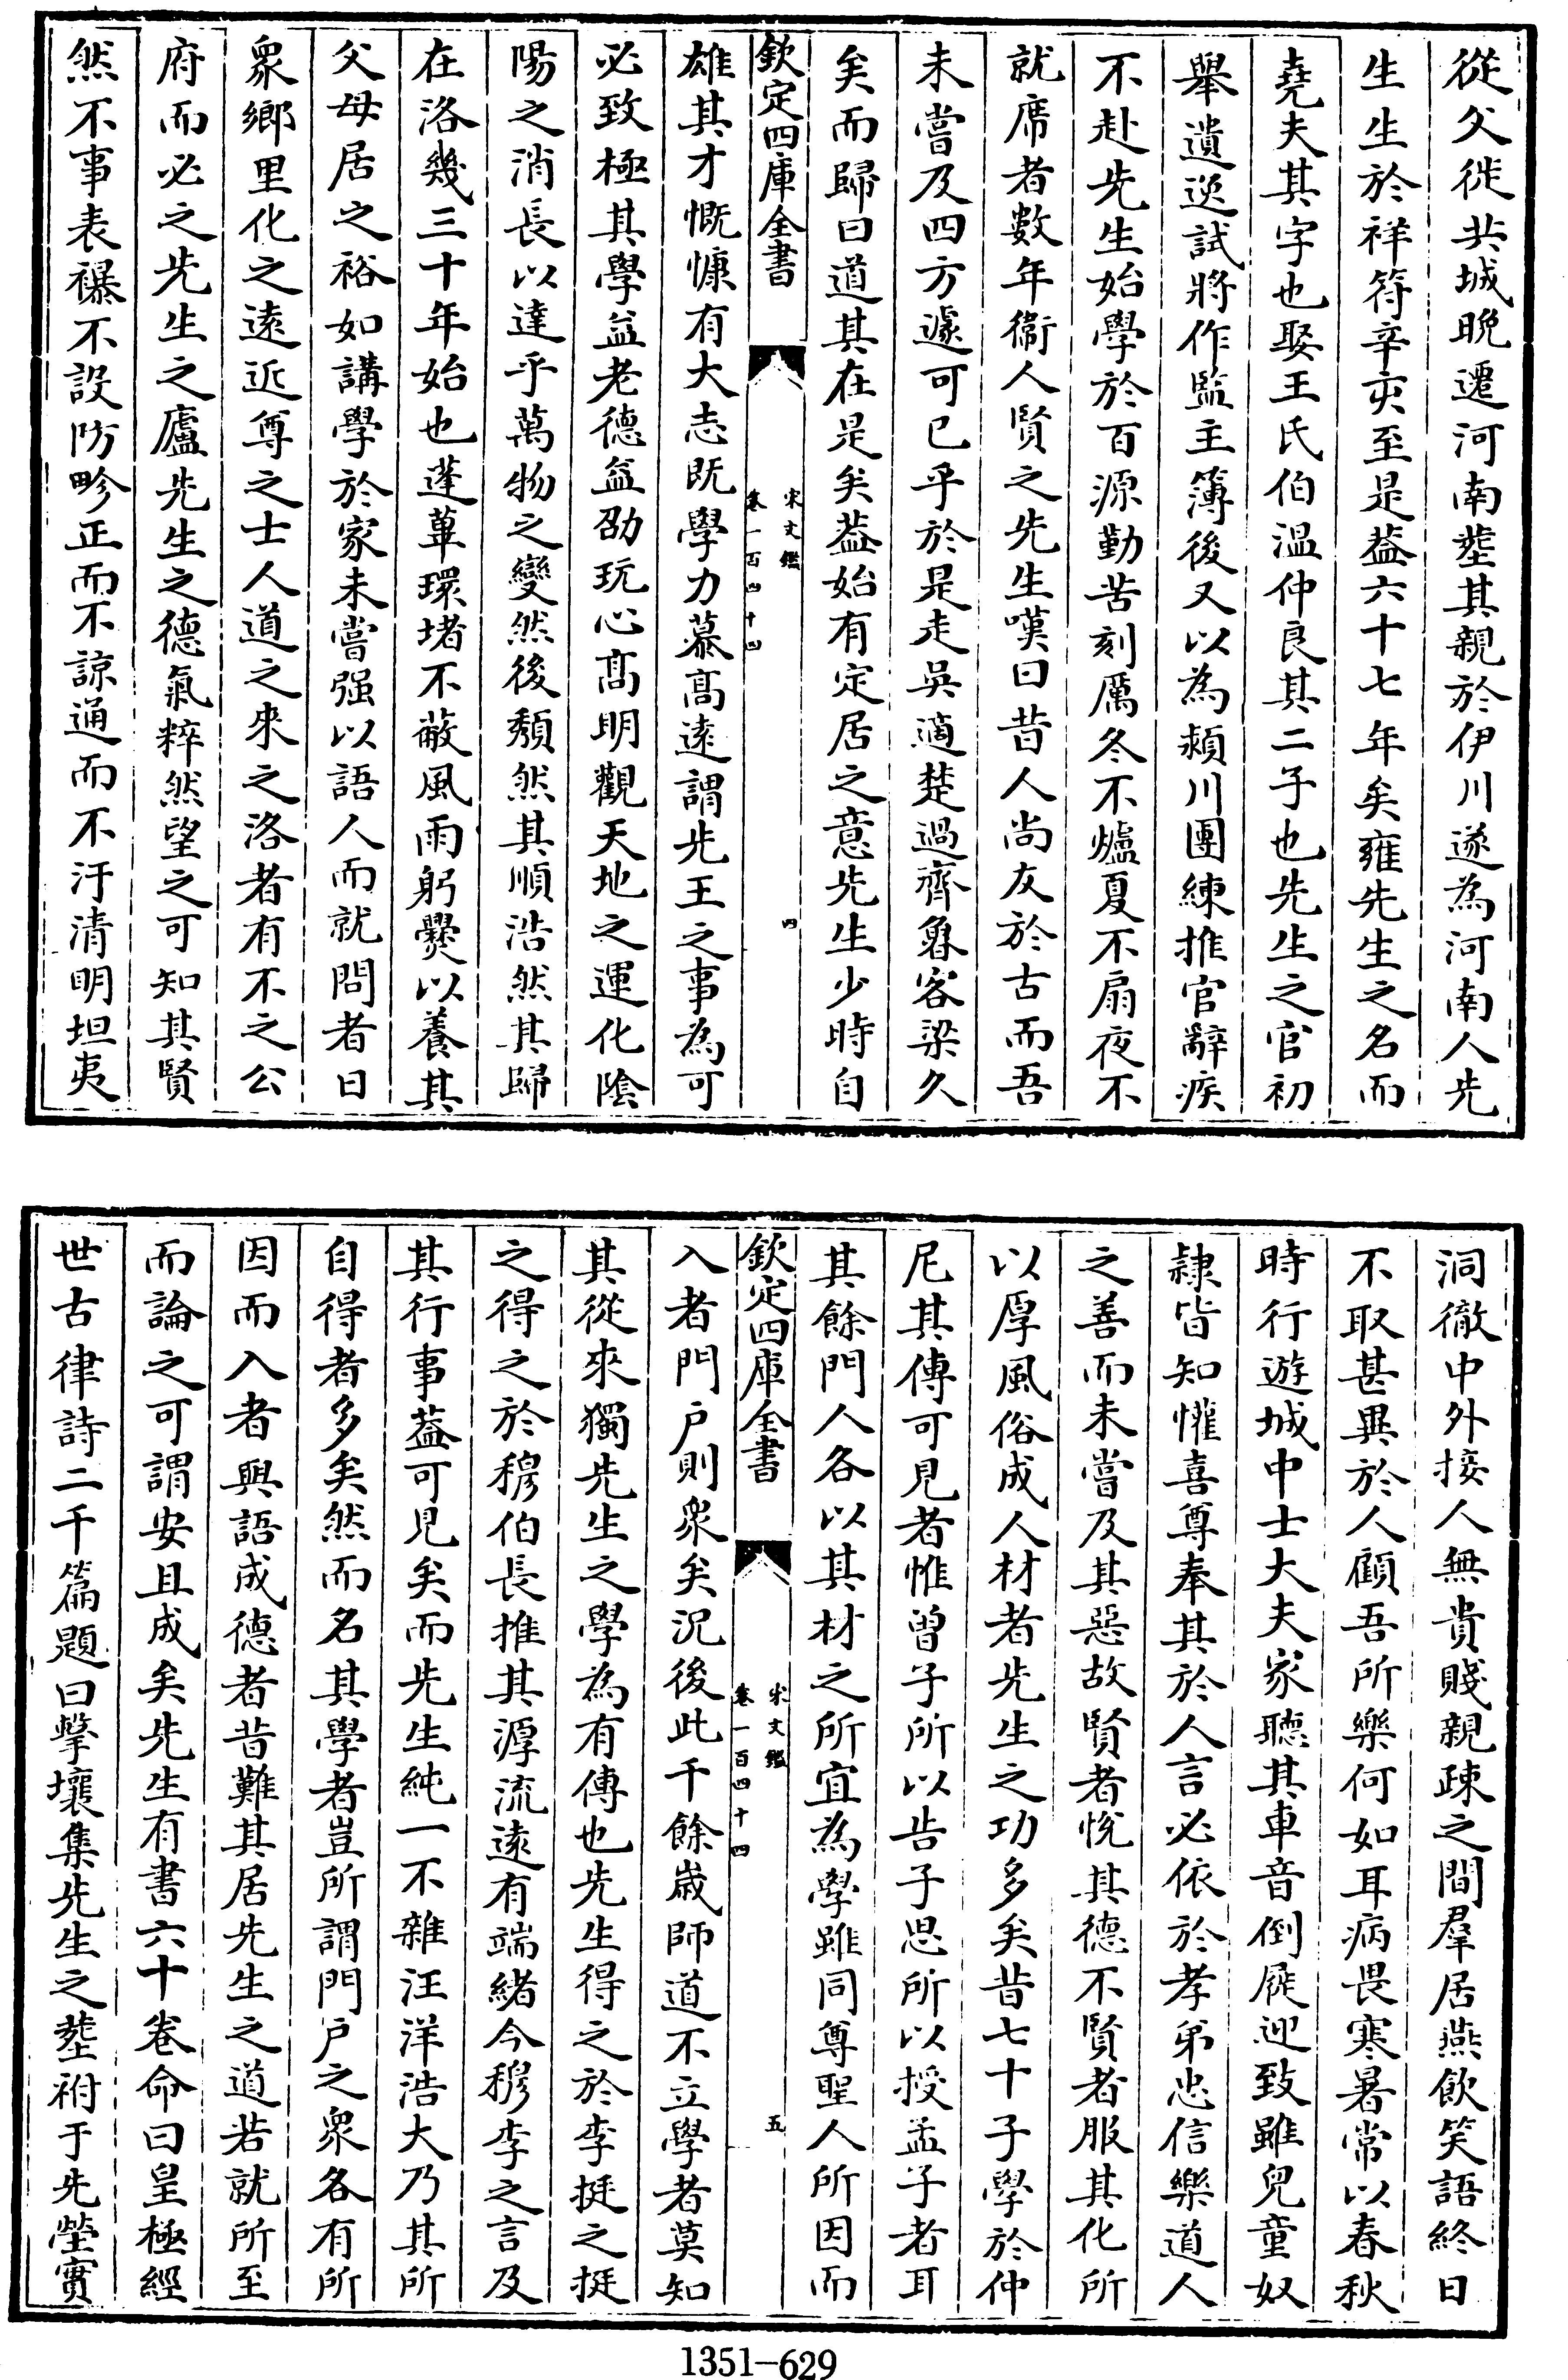 從父徙共城晚遷河南塟其親於伊川遂為河南人先
生生於祥符辛亥至是葢六十七年矣雍先生之名而
堯夫其字也娶王氏伯温仲良其二子也先生之官初
舉遺逸試將作監主簿後又以為潁川團練推官辭疾
不赴先生始學於百源勤苦刻厲冬不爐夏不扇夜不
就席者數年衛人賢之先生嘆曰昔人尚友於古而吾
未嘗及四方遽可已乎於是走吳適楚過齊魯客梁久
矣而歸曰道其在是矣葢始有定居之意先生少時自
欽定四庫全書
宋文鑑
卷一百四十四
四
雄其才慨慷有大志既學力慕髙遠謂先王之事為可
必致極其學益老德益劭玩心髙明觀天地之運化陰
陽之消長以達乎萬物之變然後頽然其順浩然其歸
在洛幾三十年始也蓬蓽環堵不蔽風雨躬爨以養其
父母居之裕如講學於家未嘗强以語人而就問者日
衆鄉里化之遠近尊之士人道之來之洛者有不之公
府而必之先生之廬先生之德氣粹然望之可知其賢
然不事表襮不設防畛正而不諒通而不汙清明坦夷
洞徹中外接人無貴賤親疎之間羣居燕飲笑語終日
不取甚異於人顧吾所樂何如耳病畏寒暑常以春秋
時行遊城中士大夫家聽其車音倒屣迎致雖兒童奴
隸皆知懽喜尊奉其於人言必依於孝弟忠信樂道人
之善而未嘗及其惡故賢者悅其德不賢者服其化所
以厚風俗成人材者先生之功多矣昔七十子學於仲
尼其傳可見者惟曽子所以告子思所以授孟子者耳
其餘門人各以其材之所宜為學雖同尊聖人所因而
欽定四庫全書
宋文鑑
卷一百四十四
五
入者門户則衆矣況後此千餘嵗師道不立學者莫知
其從來獨先生之學為有傳也先生得之於李挺之挺
之得之於穆伯長推其源流遠有端緒今穆李之言及
其行事葢可見矣而先生純一不雜汪洋浩大乃其所
自得者多矣然而名其學者豈所謂門户之衆各有所
因而入者與語成德者昔難其居先生之道若就所至
而論之可謂安且成矣先生有書六十卷命曰皇極經
世古律詩二千篇題曰擊壤集先生之塟祔于先塋實
1351-629